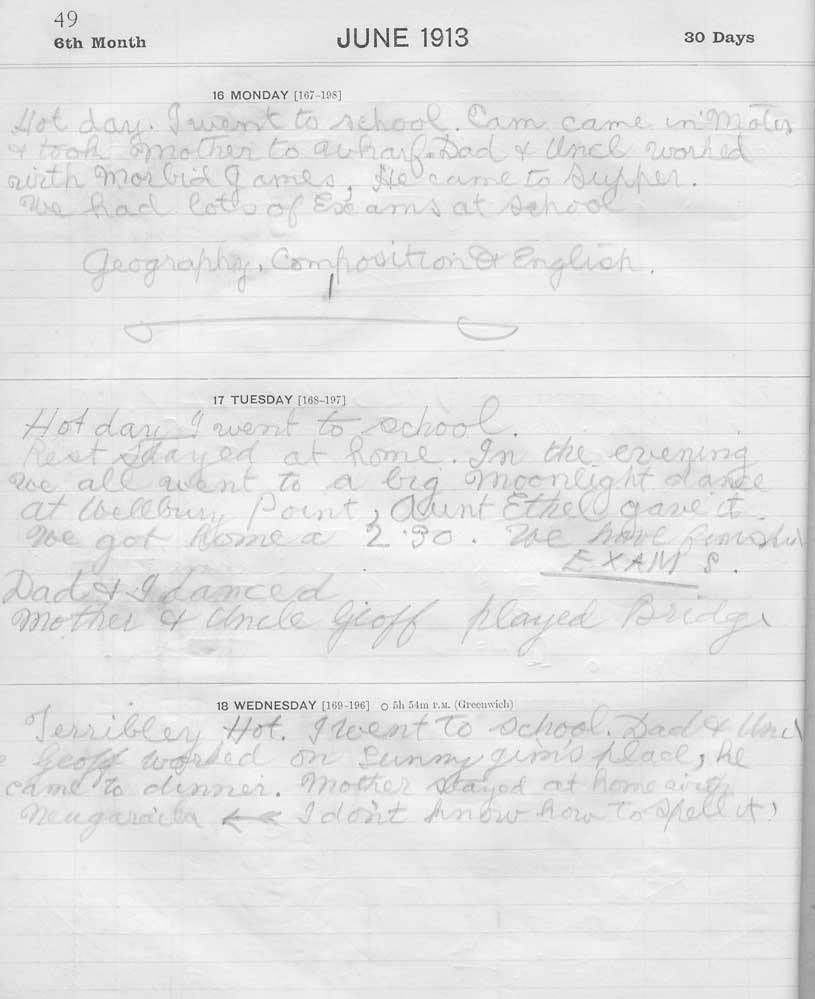 49
6th Month
JUNE 1913
30 Days
16 MONDAY [167-198]
Hot day. I went to school. Cam came in Motor
& took Mother to a wharf. Dad & Uncl worked
with Morbid Games, He came to Supper.
We had lots of Exams at school
Geography, Composition & English.
17 TUESDAY [168-197]
Hot day I went to school.
Rest stayed at home. In the evening
We all went to a big Moonlight dance
at Point, Aunt Ethel gave it.
We got home a 2.30. We have finished
EXAMS.
Dad & I danced
Mother & Uncle Geoff played Bridge
18 WEDNESDAY [169-196] ○ 5h 54m P.M. (Greenwich)
Terribley Hot. I went to school. Dad & Uncl
e Geoff worked on Sunny gim's place, he
came to dinner. Mother stayed at home with
I don't know how to spell it!